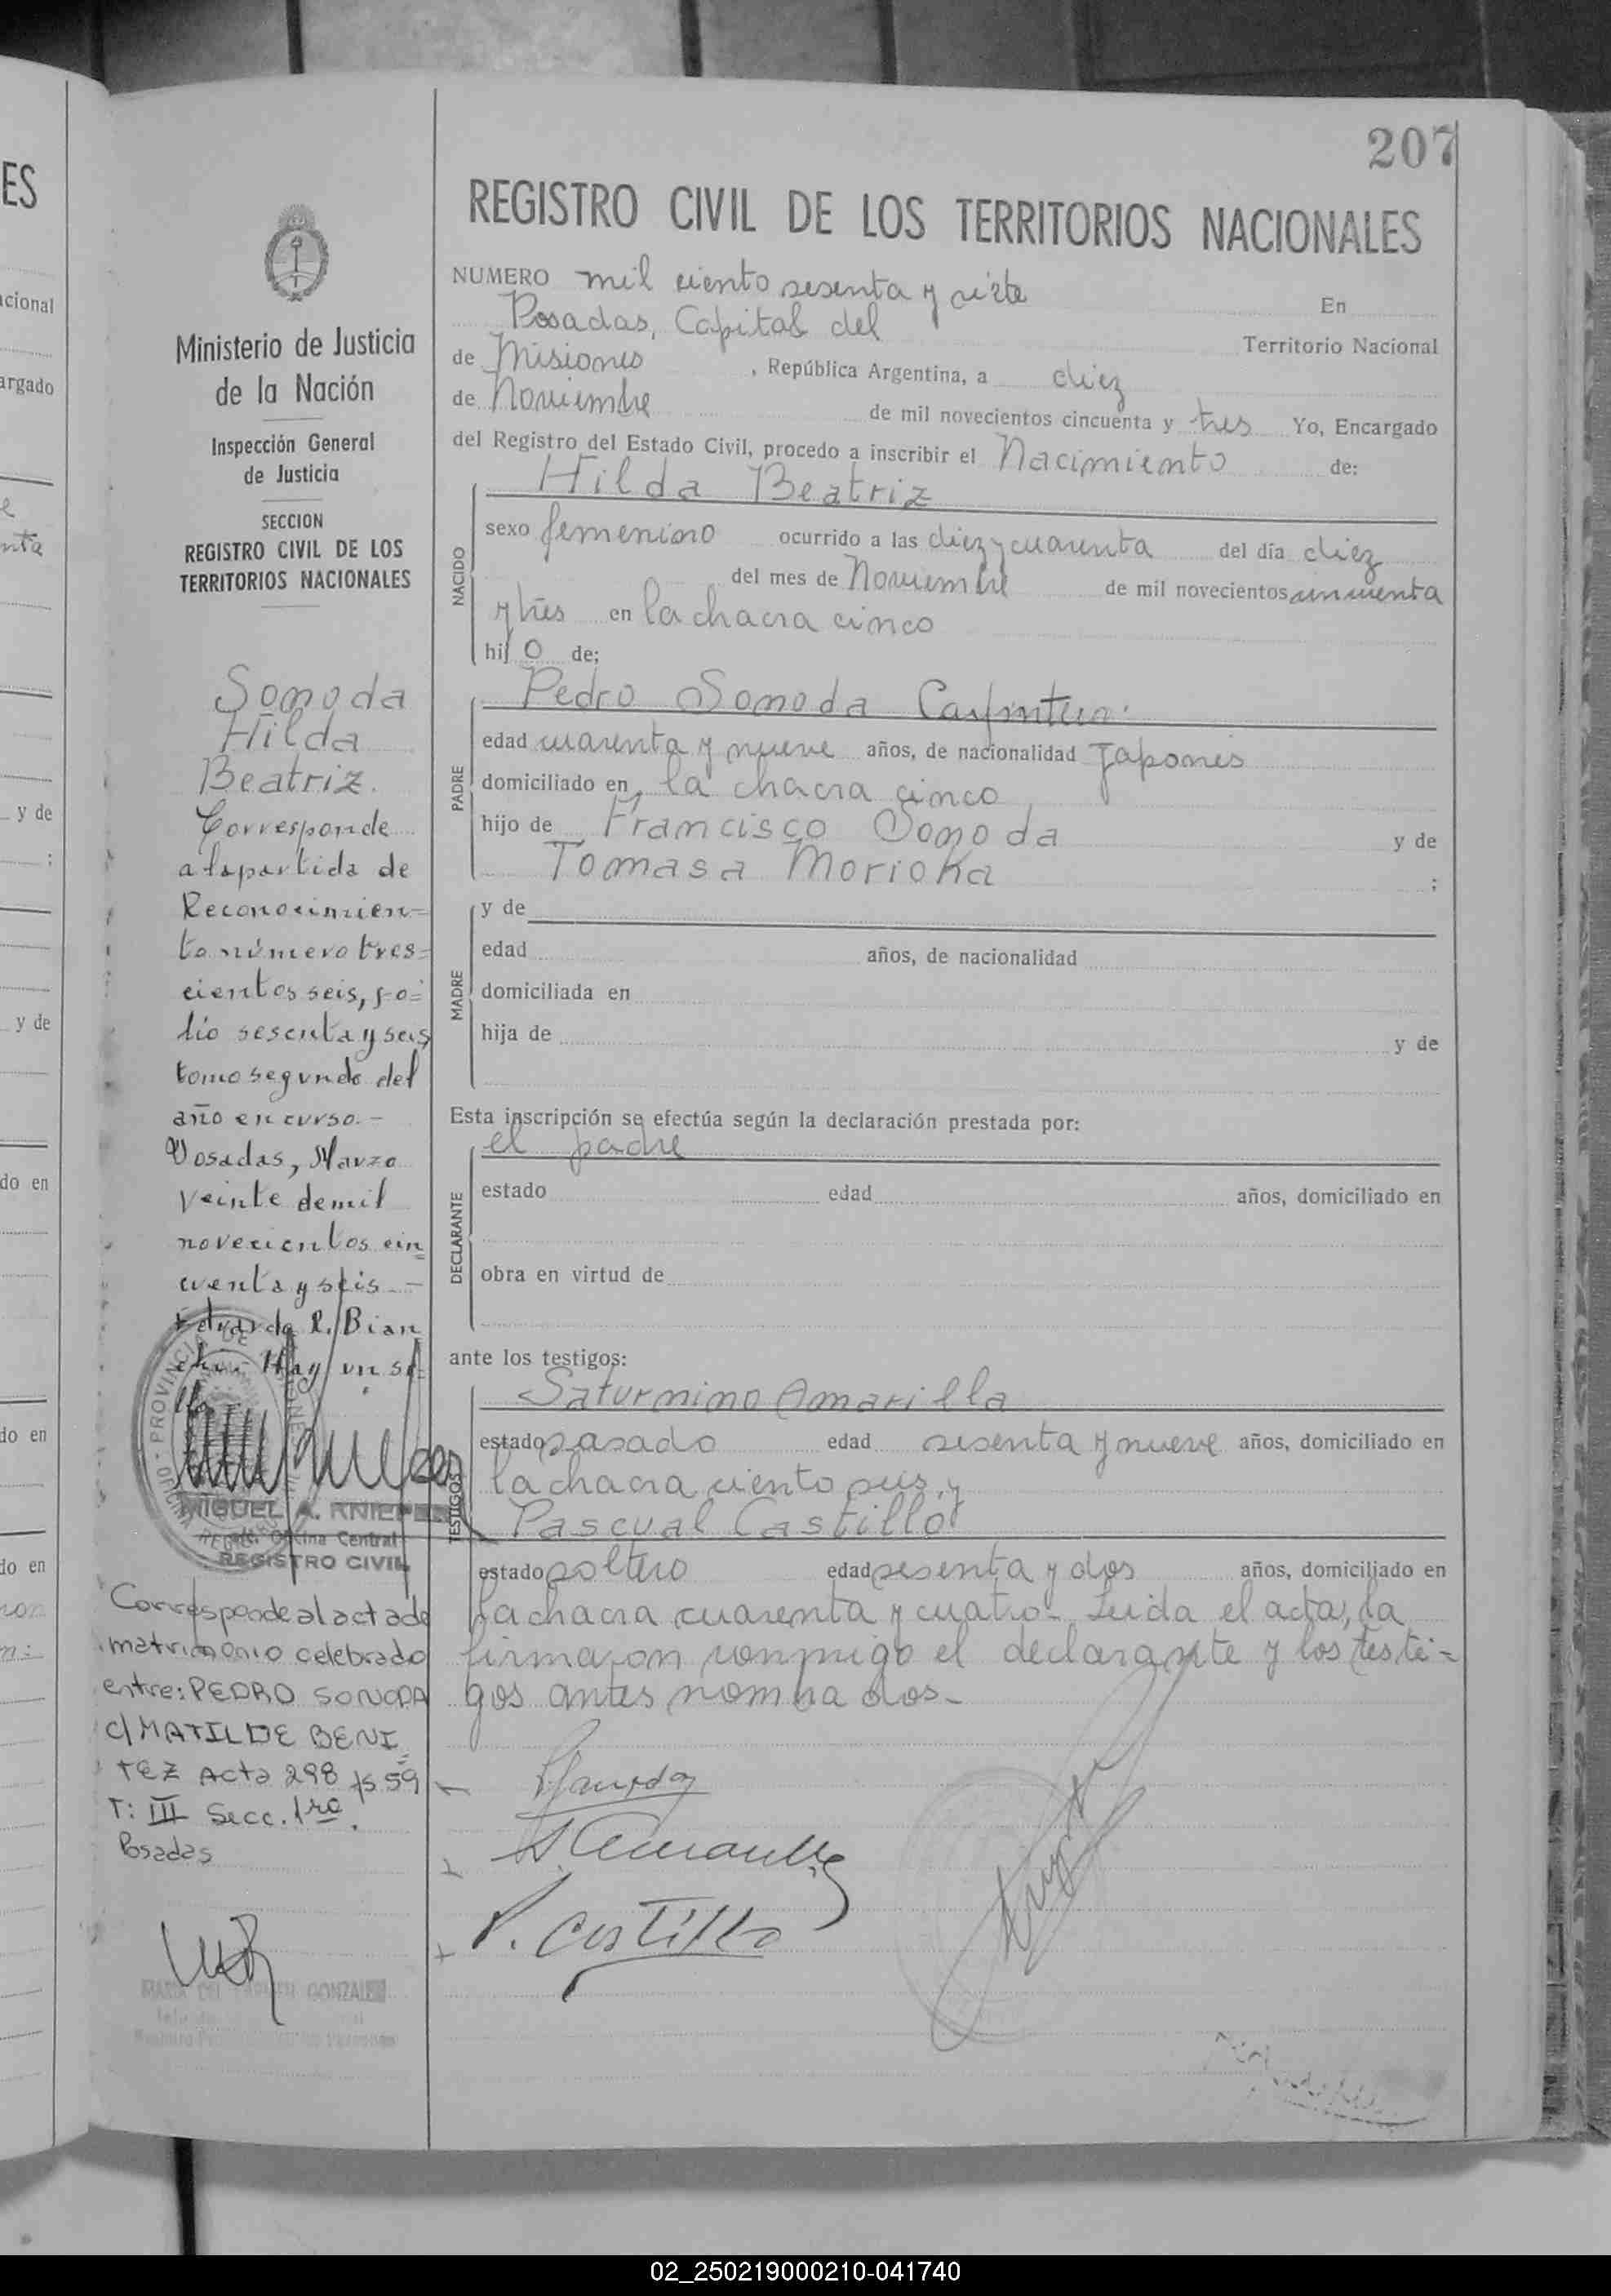 207
REGISTRO CIVIL DE LOS TERRITORIOS NACIONALES
NUMERO mil ciento sesenta y siete En
Posadas, Capital del Territorio Nacional
de Misiones, República Argentina, a diez
de Noviembre de mil novecientos cincuenta y tres Yo, Encargado
del Registro del Estado Civil, procedo a inscribir el Nacimiento de:
Hilda Beatriz
NACIDO
sexo femenino ocurrido a las diez y cuarenta del día diez
del mes de Noviembre de mil novecientos cincuenta
y tres en la chacra cinco
hijo de;
PADRE
Pedro Sonoda Carpintero.
edad cuarenta y nueve años, de nacionalidad Japonés
domiciliado en la chacra cinco
hijo de Francisco Sonoda y de
Tomasa Morioka ;
MADRE
y de
edad años, de nacionalidad
domiciliada en
hija de y de
Esta inscripción se efectúa según la declaración prestada por:
DECLARANTE
el padre
estado edad años, domiciliado en
obra en virtud de
ante los testigos:
TESTIGOS
Saturnino Amarilla
estado casado edad sesenta y nueve años, domiciliado en
la chacra ciento seis, y
Pascual Castillo
estado soltero edad sesenta y dos años, domiciliado en
la chacra cuarenta y cuatro- Leida el acta, la
firmaron conmigo el declarante y los testi-
gos antes nombrados-
P. Castillo
Ministerio de Justicia
de la Nación
Inspección General
de Justicia
SECCION
REGISTRO CIVIL DE LOS
TERRITORIOS NACIONALES
Sonoda
Hilda
Beatriz.
Corresponde
a la partida de
Reconocimien=
to número tres=
cientos seis, fo=
lio sesenta y seis
tomo segundo del
año en curso.-
Posadas, Marzo
veinte de mil
novecientos cin=
cuenta y seis.-
Eduardo R. Bian
Hay un se=
llo
MIGUEL A.
Oficina Central
REGISTRO CIVIL
Corresponde al acta de
matrimonio celebrado
entre: PEDRO SONODA
c/ MATILDE BENI=
TEZ Acta 298 fs 59
T: III Secc. 1ra.
Posadas
GONZALEZ
ES
acional
argado
nta
y de
;
y de
do en
do en
do en
02_250219000210-041740